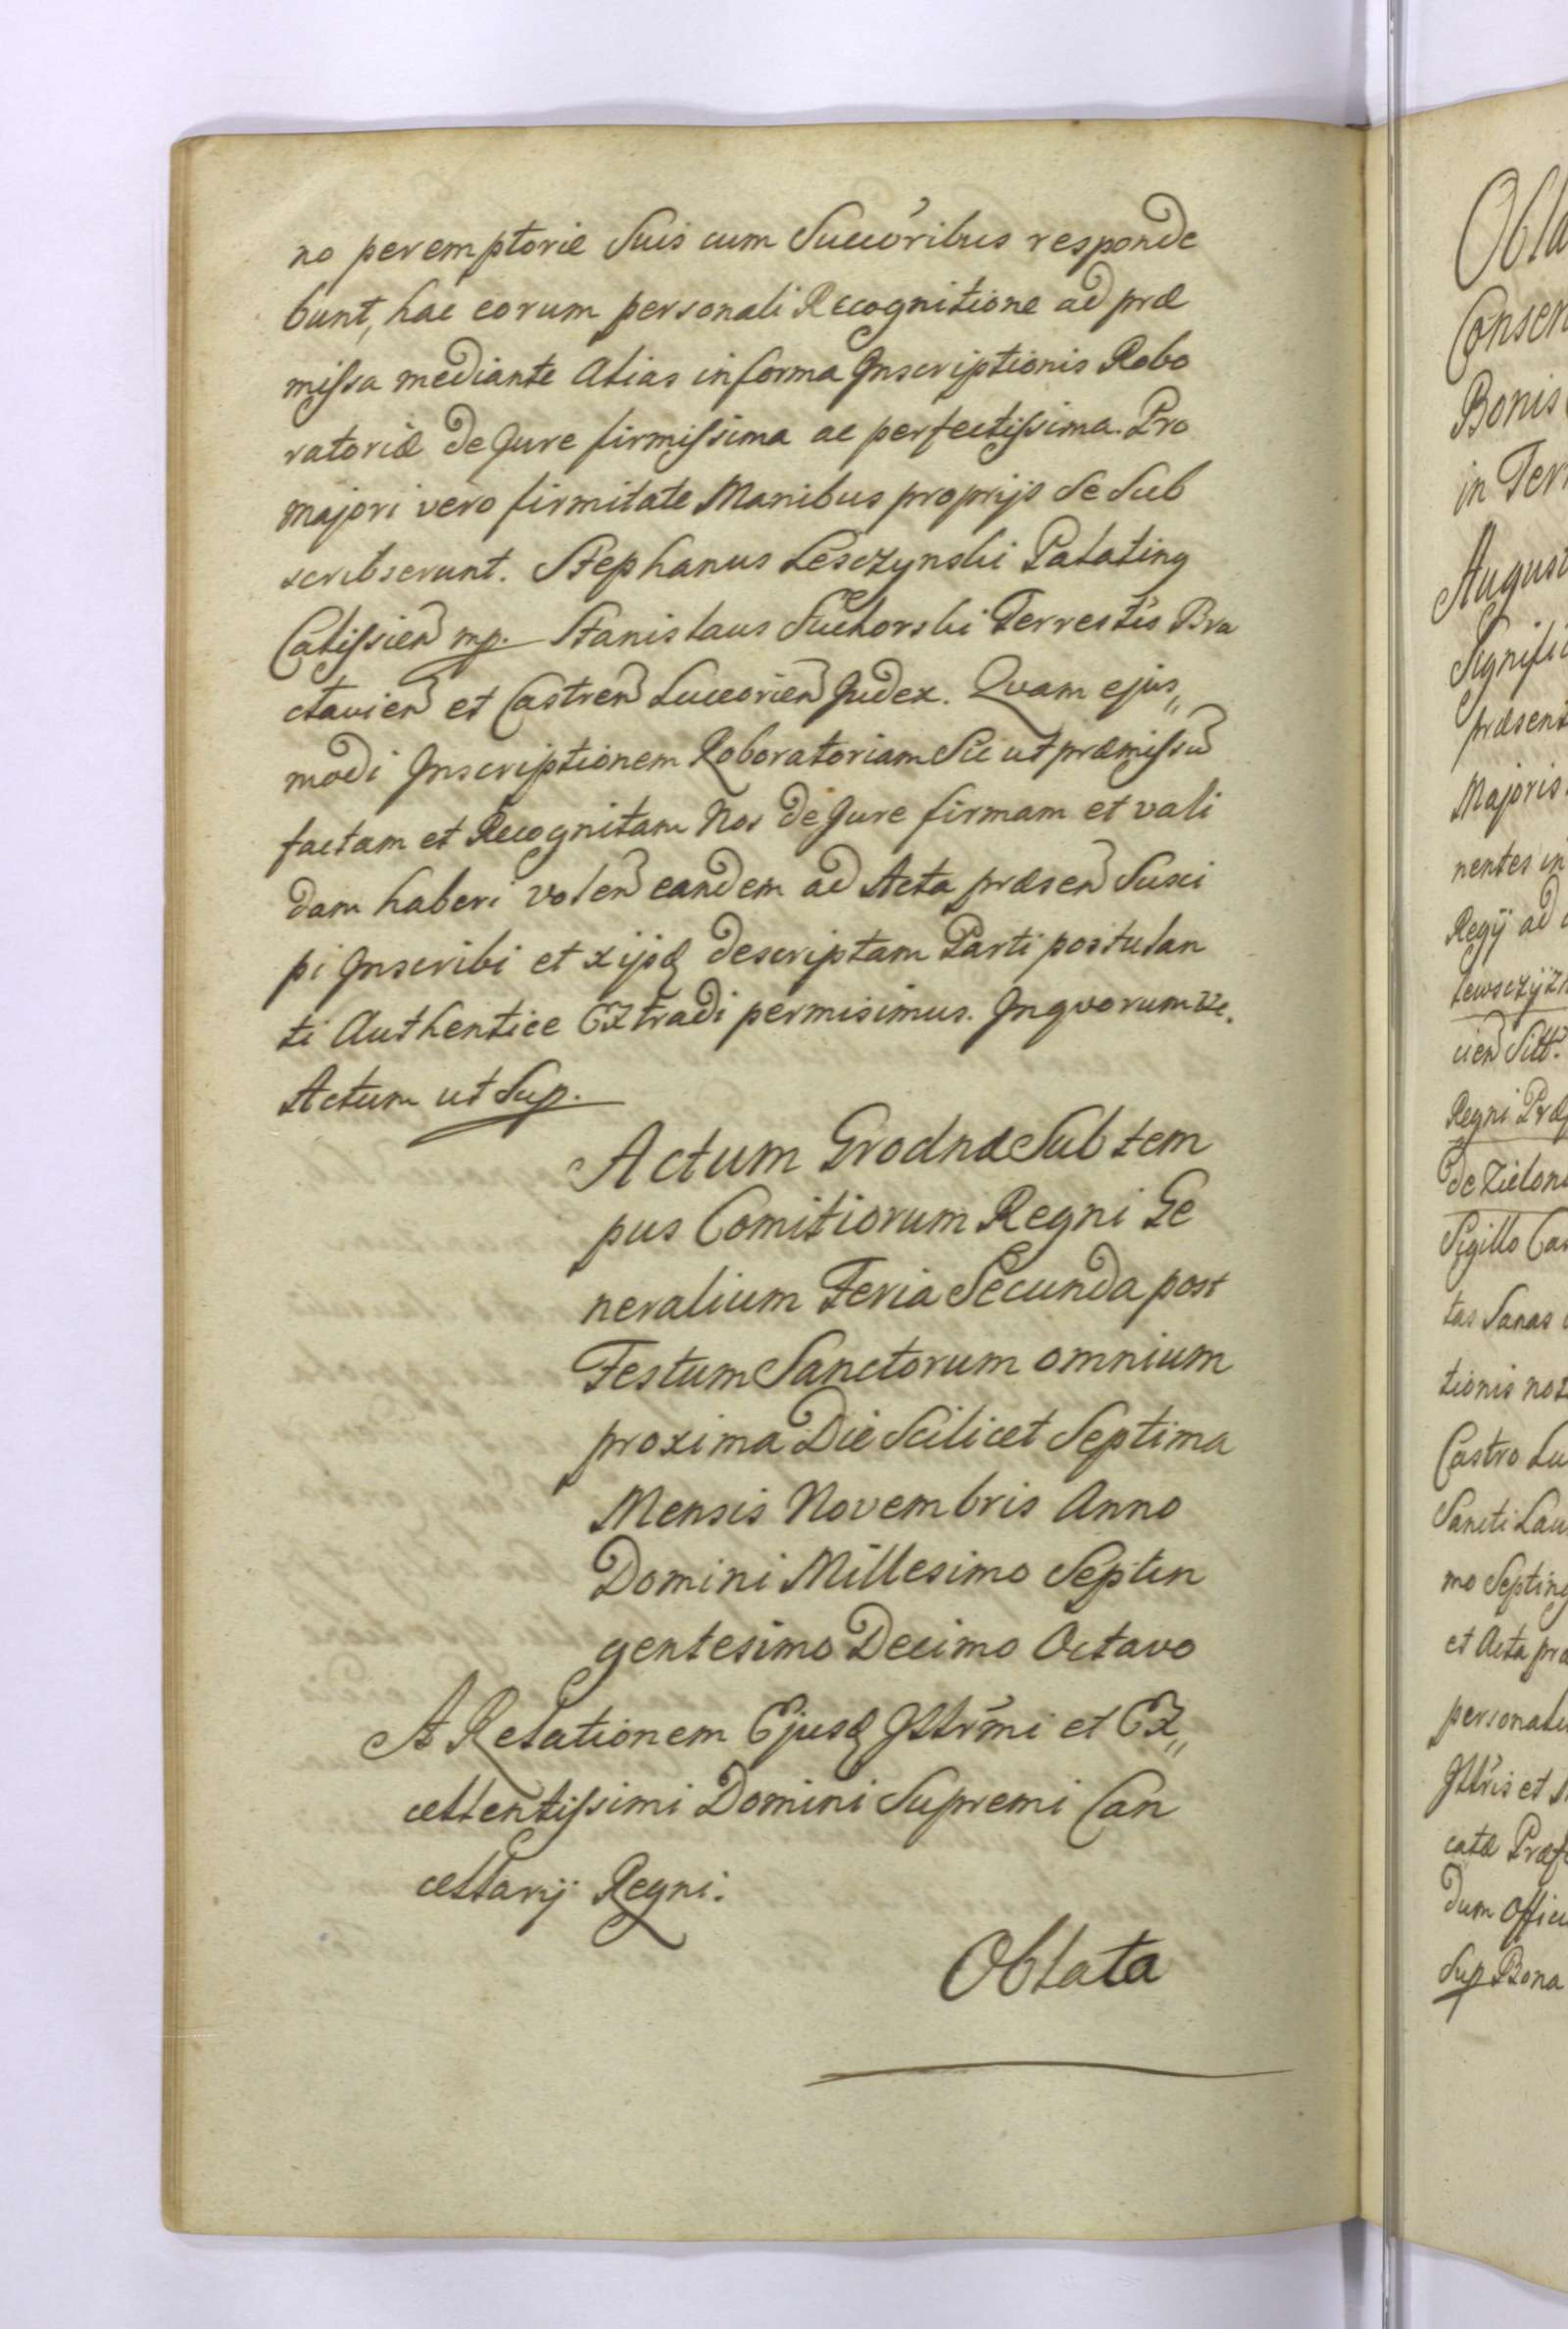 no peremptorie Suis cum Succōribus responde
bunt, hac eorum personali Recognitione ad præ
missa mediante Alias in forma Inscriptionis Robo
ratoriæ de Jure firmissima ac perfectissima. Pro
majori vero firmitate Manibus proprijs Se Sub
scribserunt. Stephanus Lesczynski Palatinq
Calissien mp. Stanislaus Suchorski Terrestis Bra
clavien et Castren Luceorien Judex. Qvam ejus„
modi Inscriptionem Roboratoriam Sic ut præmissū
factam et Recognitam Nos de Jure firmam et vali
dam haberi volen eandem ad Acta præsen Susci
pi Inscribi et xijsq descriptam Parti postulan
ti Authentice Extradi permisimus. Inqvorum &c.
Actum ut Sup.
Actum Grodnæ Sub tem
pus Comitiorum Regni Ge
neralium Feria Secunda post
Festum Sanctorum omnium
proxima Die Scilicet Septima
Mensis Novembris Anno
Domini Millesimo Septin
gentesimo Decimo Octavo
A Relationem Ejusq Illrm̄i et Ex„
cellentissimi Domini Supremi Can
cellarij Regni.
Oblata
Obla
Consen
Bonis
in Terr
August
Signific
præsent
Majoris
nentes in
Regij ad
cien Sitt.
Regni Præf
de Zielon
Sigillo Can
tas Sanas
tionis not
Castro Lu
Sancti Lau
mo Septing
et Acta præ
personali
Illris et
catæ Præf
dum Offici
Sup Bona